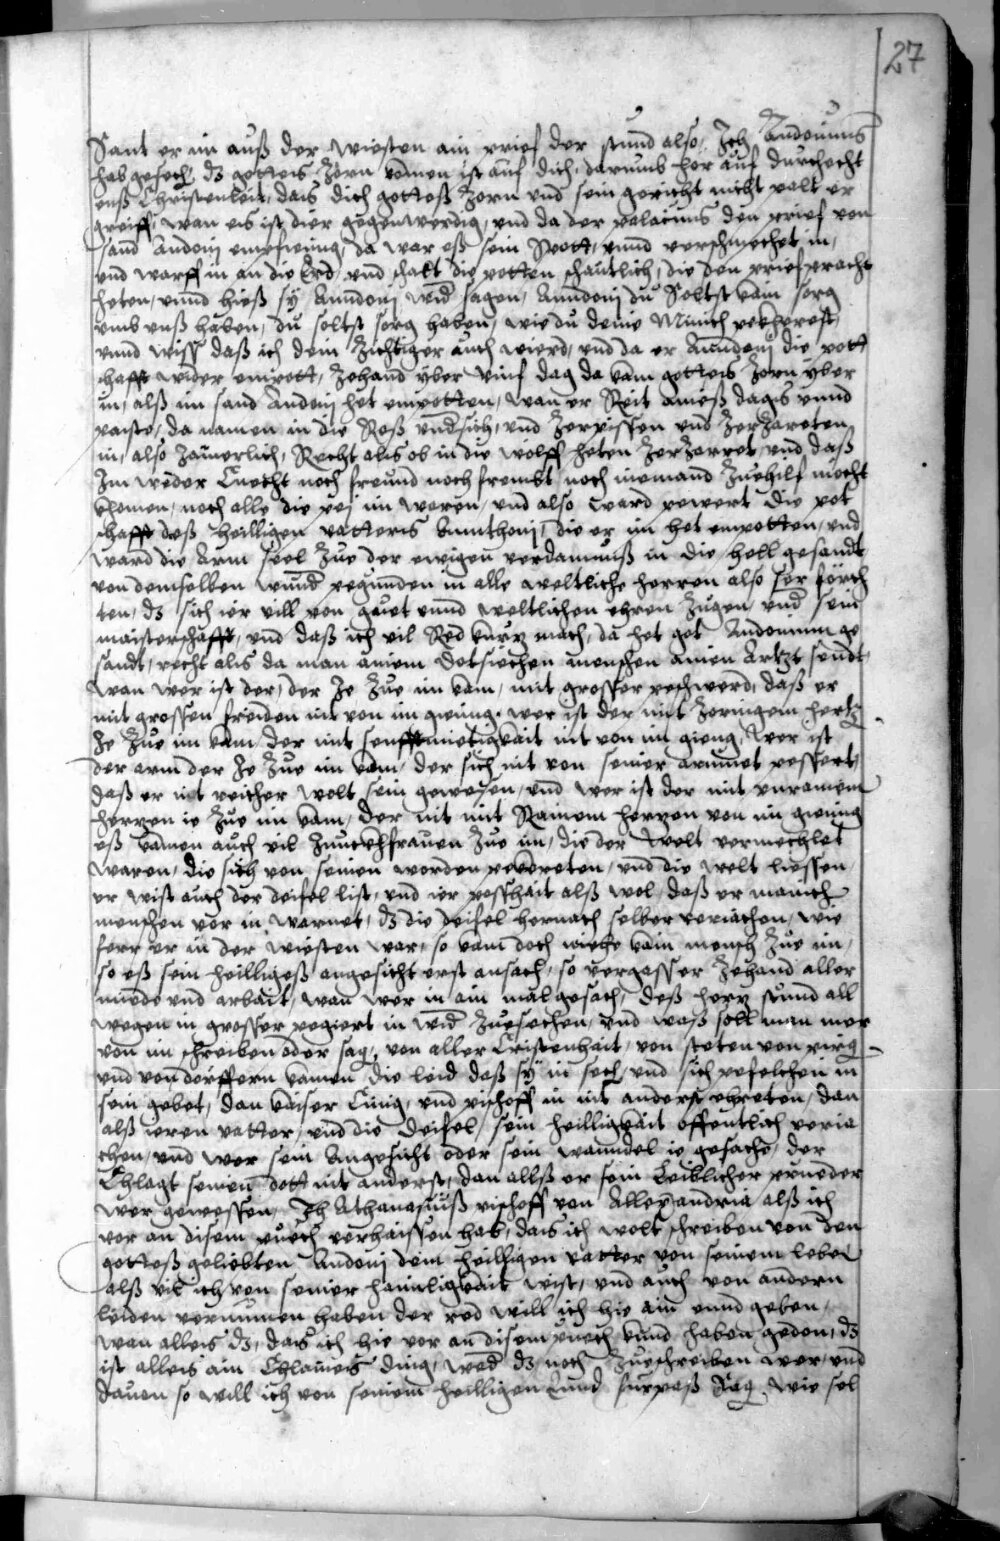 27
Sant er im auß der wiesten ain prief der stund also, Ich Andonius
hab gesech, dz gottes Zorn komen ist auf dich, darumb hör auf durchecht
unß Christenleit, das dich gotteß Zorn und sein gericht nicht palt er
greiff, wan es ist dier gegenwerdig, und da der valacius den prief von
sand Andoni empfieng, da war eß sein Spott, unnd verschmechet in,
und warff in an die Erd, und schalt die potten schantlich, die den prief pracht
heten, unnd hieß sy Anndoni wid sagen, Anndoni du Soltst kain sorg
umb unß haben, du soltst sorg haben, wie du deine Münich pekherest,
unnd wiss daß ich dein Zichtiger auch wierd, und da er Anndoni die pott
schafft wider empott, Zehand yber Finf dag da kam gottes Zorn yber
in, alß im sand Andoni het empotten, wan er Reit aineß dages unnd
paiste, da namen in die Roß undsich, und Zerrissen und Zerzareten
in, also Jamerlich, Recht als ob in die wölff heten Zerzerret, und daß
Im weder Knecht noch freund noch frembt noch niemand Zuehilf mocht
khomen, noch alle die pei im weren, und also ward pewert die pot
schafft deß heilligen vatters Annthoni, die er im het empotten, und
ward die Arm seel Zue der ewigen verdamniß in die hell gesandt
von demselben wund, pegunden in alle weltliche herren also ser förch
ten, dz sich ier vill von guet unnd weltlichen ehren Zugen, und sein
maisterschafft, und daß ich vil Red kurz mach, da het got Andonium ge
sandt, recht als da man ainem dotsiechen menschen ainen Artzt sendt,
wan wer ist der, der Je Zue im kam, mit grosser peschwerd, daß er
mit grossen freiden nit von im gieng, wer ist der mit Zornigem hertz
Je Zue im kam, der mit senfftmietigkait nit von im gieng, Wer ist
der arm der Je Zue im kam, der sich nit von seiner armuet pessert,
daß er nit reicher wolt sein gewesen, und wer ist der mit unrainem
herzen ie Zue im kam, der nit mit Rainem herzen von im gieng
eß kamen auch vil Junckhfrauen Zue im, die der Welt vermechlet
waren, die sich von seinen worden pekereten, und die welt liessen,
er wist auch der deifel list, und ier posshait alß wol, daß er manich
menschen vor in warnet, dz die deifel hernach selber veriachen, wie
ferr er in der wiesten war, so kam doch niehe kain mensch Zue im,
so eß sein heilligeß angesicht erst ansach, so vergass er Zehand aller
miede und arbait, wan wer in ain mal gesach, deß herz stund all
wegen in grosser pegiert in wid Zuesechen, und waß soll man mer
von im schreiben oder sag, von aller Cristenhait, von steten von pirg
und von dörffern kamen die leid daß sy in sech, und sich pefelchen in
sein gebet, dan kaiser Cinig, und pischoff in nit anderst ehreten, dan
alß ieren vatter, und die deifel, sein heilligkait offentlich veria
chen, und wer sein Angesicht oder sein wanndel ie gesache, der
Chlagt seinen dott nit anderst, dan allß er sein Leiblicher prueder
wer gewessen, Ih Athanasiuß pischoff von Allexandria alß ich
vor an disem puech verhaissen hab, das ich wolt schreiben von den
gotteß geliebten Andoni dem heilligen vatter von seinem leben
alß vil ich von seiner haimligkait wist, und auch von andern
leiden vernumen haben der red will ich hie ain ennd geben,
wan alles dz, das ich hie vor an disem puech kund haben gedon, dz
ist alles ain Chlaines ding, wid dz noch Zueschreiben wer, und
davon so will ich von seinem heilligen Lund fürpaß sag, wie sel